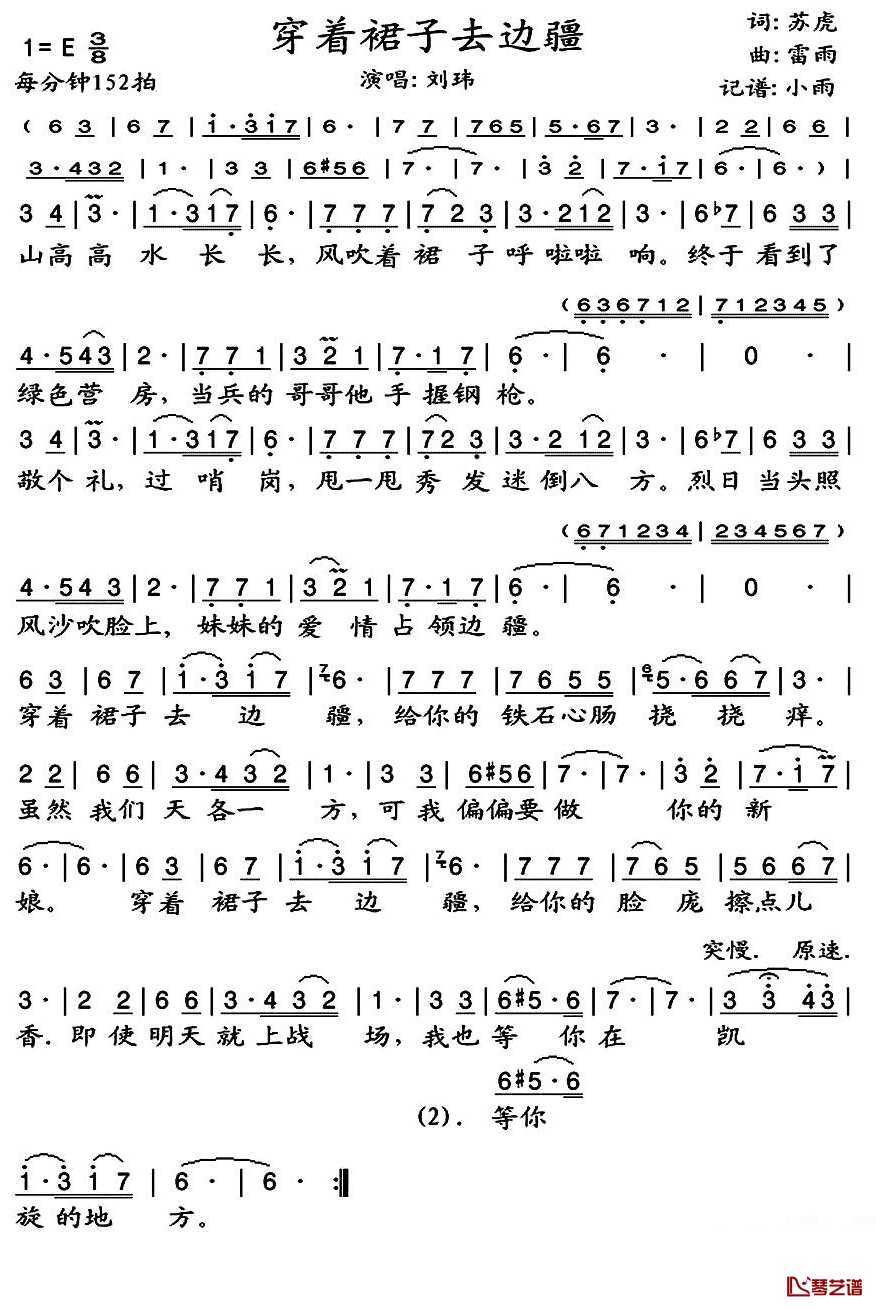 穿着裙子去边疆
1= E 3/8
每分钟152拍
演唱: 刘玮
词: 苏虎
曲: 雷雨
记谱: 小雨
( 6 3 | 6 7 | 1·317 | 6· | 7 7 | 765 | 5·67 | 3· | 2 2 | 6 6 |
3·432 | 1· | 3 3 | 6#56 | 7· | 7· | 3 2 | 7·17 | 6· | 6· ) |
3 4 | 3· | 1·317 | 6· | 7 7 7 | 7 2 3 | 3·212 | 3· | 6♭7 | 6 3 3 |
山高 高 水 长 长, 风吹着 裙 子 呼 啦啦 响。终于 看到了
( 636712 | 712345 )
4·543 | 2· | 7 7 1 | 3 2 1 | 7·1 7 | 6· | 6 · | 0 · |
绿色营 房, 当兵的 哥哥他 手 握钢 枪。
3 4 | 3· | 1·317 | 6· | 7 7 7 | 72 3 | 3·2 12 | 3· | 6♭7 | 6 3 3 |
敬个 礼, 过 哨 岗, 甩一甩 秀 发 迷 倒八 方。烈日 当头照
( 671234 | 234567 )
4·543 | 2· | 7 7 1 | 3 2 1 | 7·1 7 | 6· | 6 · | 0 · |
风沙吹脸上, 妹妹的 爱 情 占 领边 疆。
6 3 | 6 7 | 1·3 1 7 | 7 6· | 7 7 7 | 7 6 5 5 | 6 5·66 7 | 3· |
穿着 裙子 去 边 疆, 给你的 铁石心肠 挠 挠 痒。
2 2 | 6 6 | 3·4 3 2 | 1· | 3 3 | 6#56 | 7· | 7· | 3 2 | 7·1 7 |
虽然 我们 天 各一 方, 可 我 偏偏要 做 你的 新
6· | 6· | 6 3 | 6 7 | 1·3 1 7 | 7 6· | 7 7 7 | 7 6 5 | 5 6 6 7 |
娘。 穿着 裙子 去 边 疆, 给你的 脸 庞 擦点儿
突慢. 原速.
3· | 2 2 | 6 6 | 3·4 3 2 | 1· | 3 3 | 6#5·6 | 7· | 7· | 3 3 4 3 |
香. 即 使 明天 就 上战 场, 我也 等 你 在 凯
6#5·6
(2). 等你
1·3 1 7 | 6 · | 6 · :‖
旋 的地 方。
琴艺谱